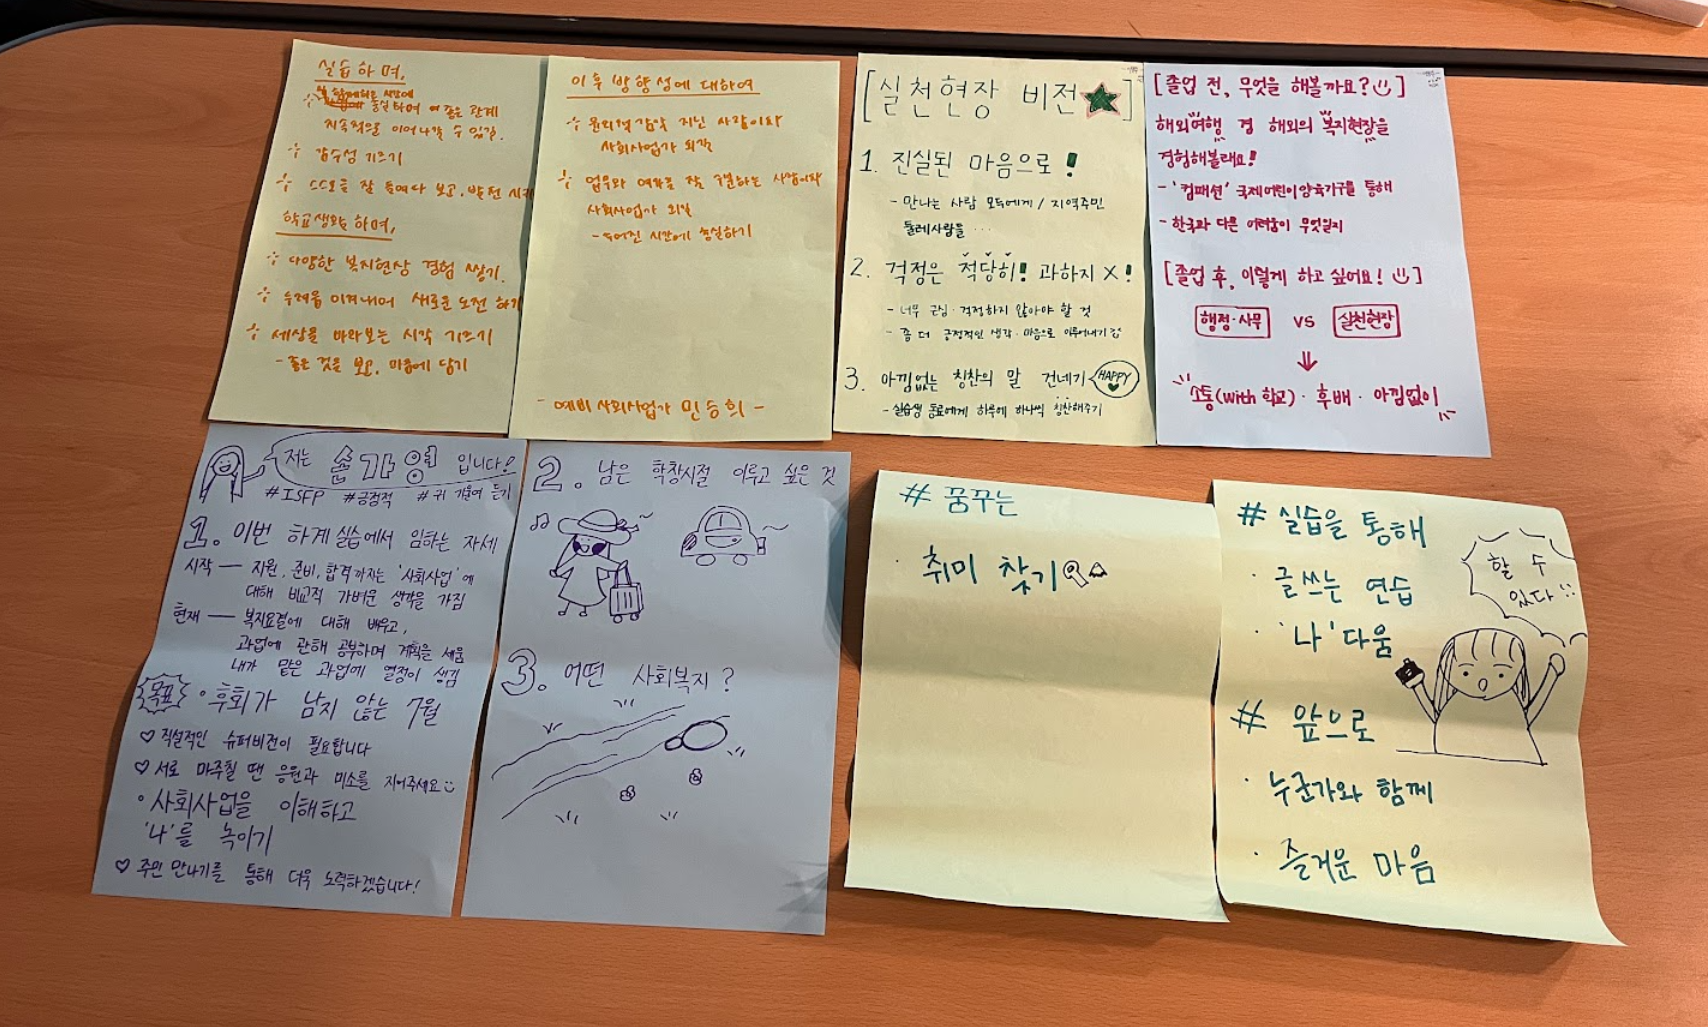 실습하며,
함께하는 시간에
충실하며 여 좋은 관계
지속적으로 이어나갈 수 있길.
감수성 기르기
스스로를 잘 들여다 보고, 발전 시키
학교생활하며,
다양한 복지현장 경험 쌓기.
두려움 이겨내어 새로운 도전 하기
세상을 바라보는 시각 기르기
- 좋은 것을 보고, 마음에 담기
이후 방향성에 대하여
윤리적 감각 지닌 사람이자
사회사업가 되길
업무와 여가를 잘 구분하는 사람이자
사회사업가 되길
- 주어진 시간에 충실하기
- 예비 사회사업가 민승희 -
[실천현장 비전★]
1. 진실된 마음으로!
- 만나는 사람 모두에게 / 지역주민
둘레사람들 ...
2. 걱정은 적당히! 과하지 X!
- 너무 근심·걱정하지 않아야 할 것
- 좀 더 긍정적인 생각·마음으로 이루어내기
3. 아낌없는 칭찬의 말 건네기
HAPPY
- 실습생 동료에게 하루에 하나씩 칭찬해주기
[졸업 전, 무엇을 해볼까요?]
해외여행 겸 해외의 복지현장을
경험해볼래요!
- '컴패션' 국제어린이양육기구를 통해
- 한국과 다른 어려움이 무엇일지
[졸업 후, 이렇게 하고 싶어요!]
행정·사무 VS 실천현장
소통(with 학교)·후배·아낌없이
저는 손가영 입니다!
#ISFP #긍정적 #귀 기울여 듣기
1. 이번 하계실습에서 임하는 자세
시작 — 지원, 준비, 합격까지는 '사회사업'에
대해 비교적 가벼운 생각을 가짐
현재 — 복지요결에 대해 배우고,
과업에 관해 공부하며 계획을 세움
내가 맡은 과업에 열정이 생김
목표 • 후회가 남지 않는 7월
♡ 직설적인 슈퍼비전이 필요합니다
♡ 서로 마주칠 땐 응원과 미소를 지어주세요
• 사회사업을 이해하고
'나'를 녹이기
♡ 주민 만나기를 통해 더욱 노력하겠습니다!
2. 남은 학창시절 이루고 싶은 것
3. 어떤 사회복지?
# 꿈꾸는
· 취미 찾기
# 실습을 통해
· 글쓰는 연습
· '나'다움
할 수
있다
# 앞으로
· 누군가와 함께
· 즐거운 마음